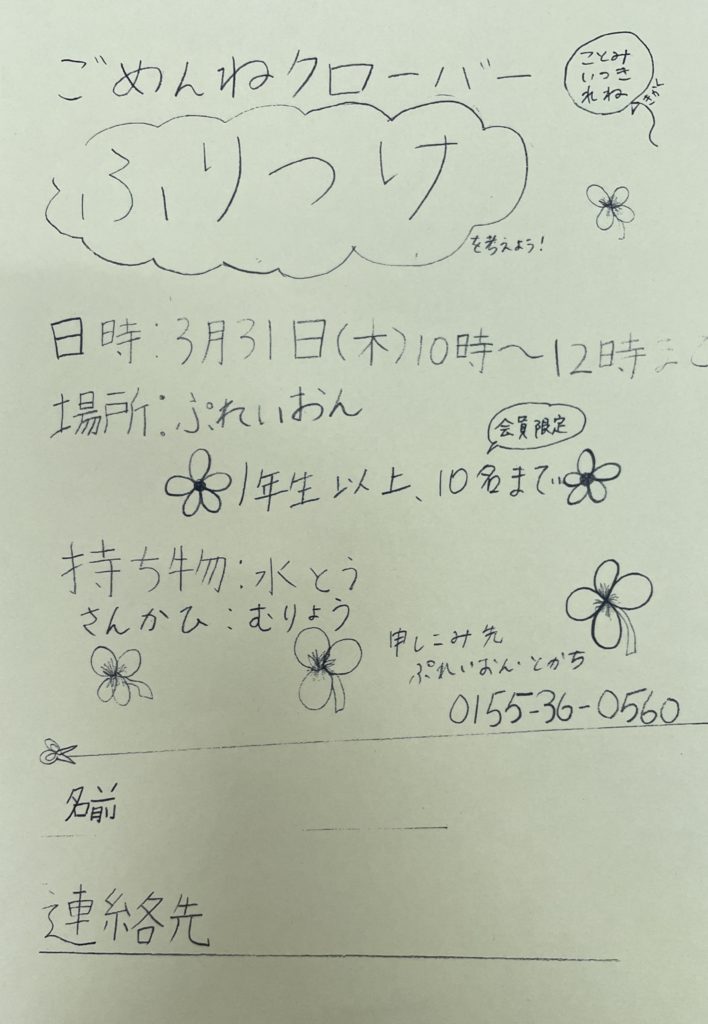 ごめんねクローバー
ことみ
いつき
れね
きかく
ふりつけ
を考えよう!
日時:3月31日(木)10時〜12時まで
場所:ぷれいおん
会員限定
1年生以上、10名まで
持ち物:水とう
さんかひ:むりょう
申しこみ先
ぷれいおん・とかち
0155-36-0560
名前
連絡先